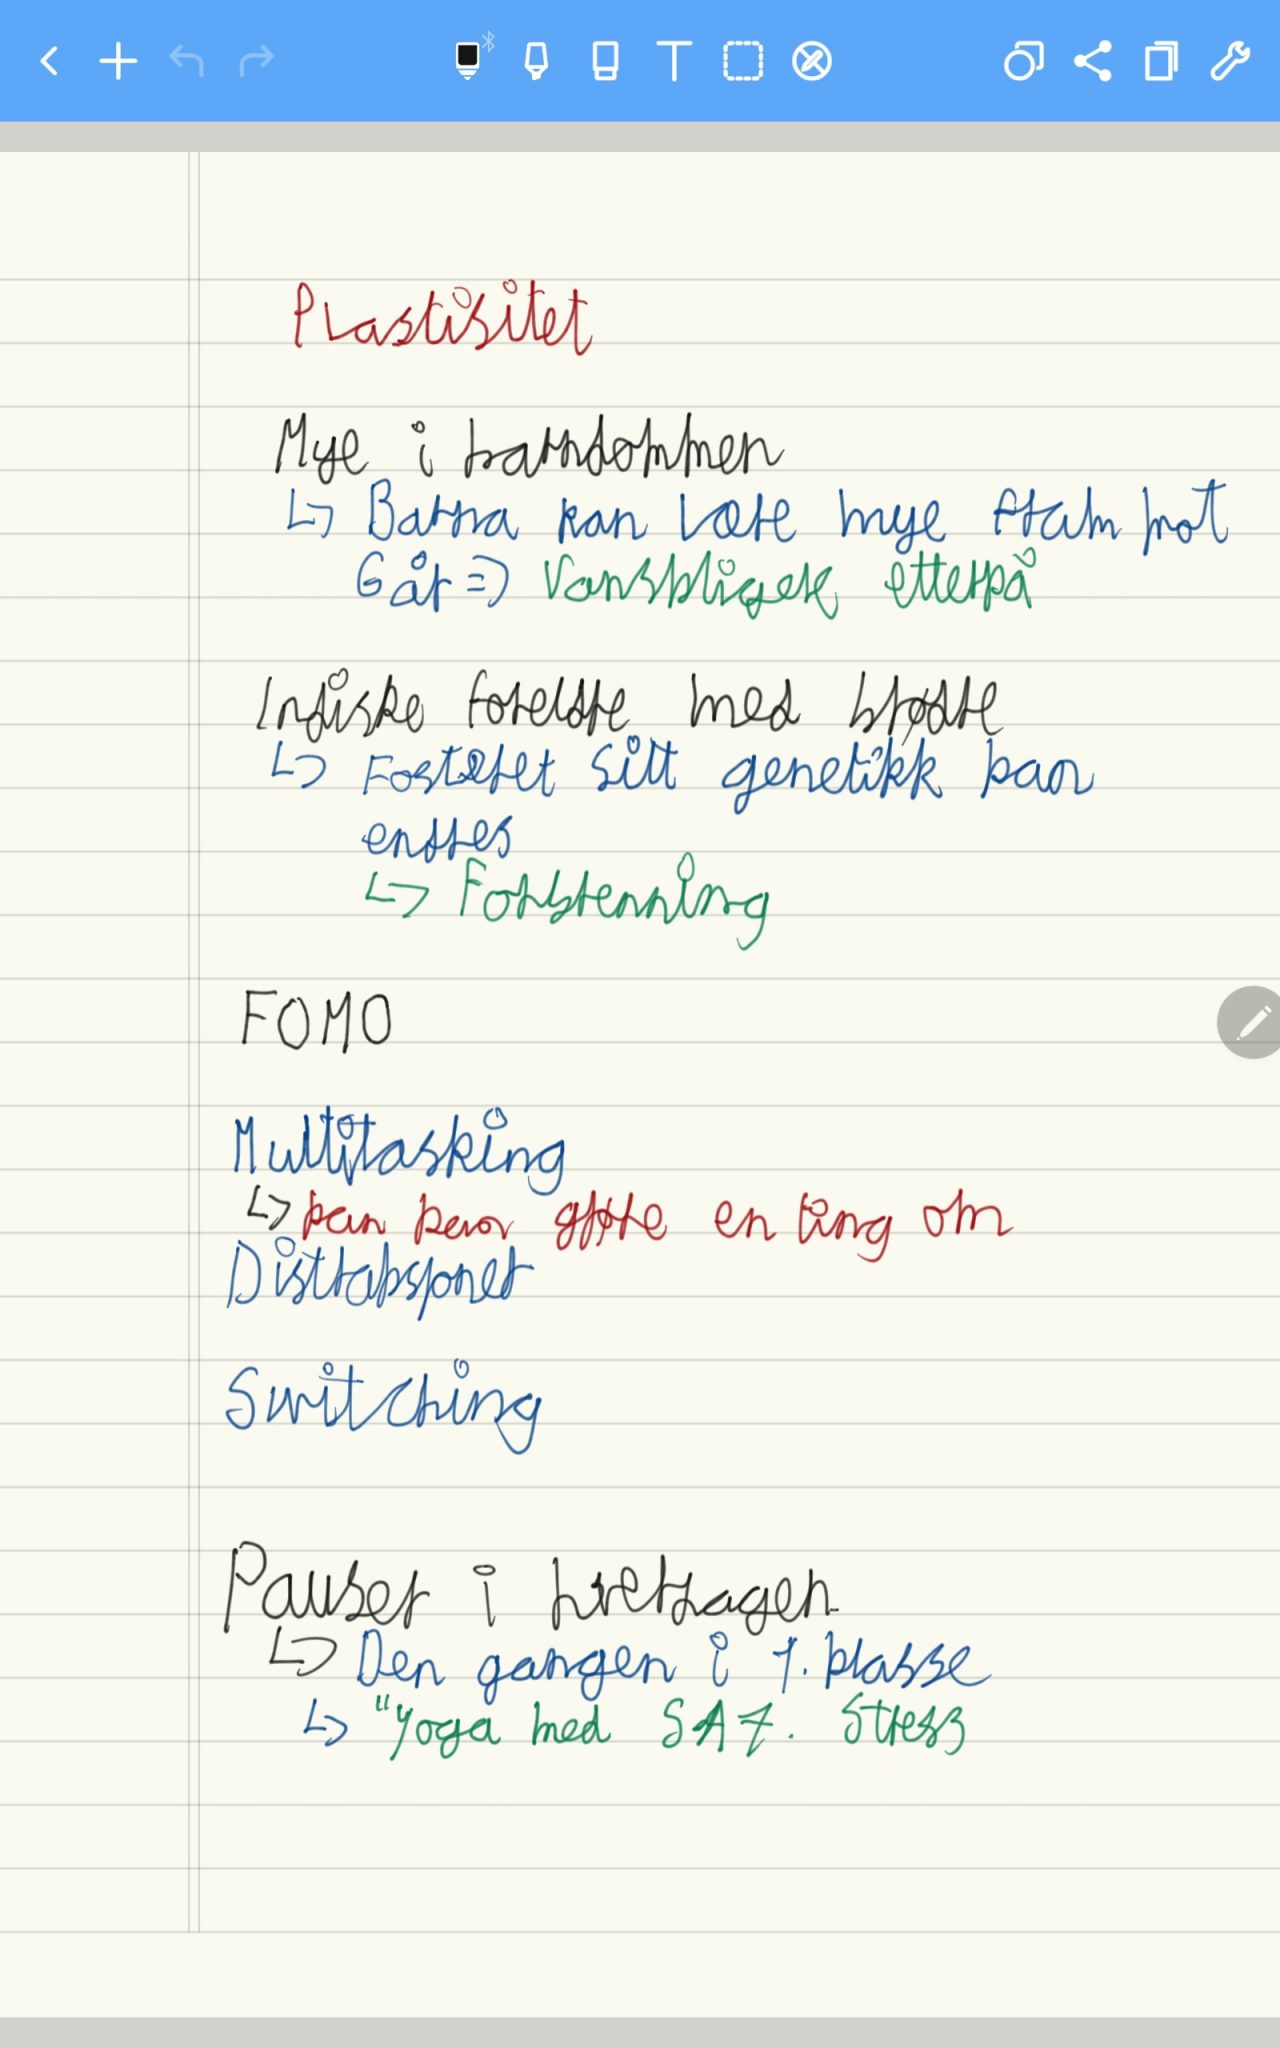 Plastisitet
Mye i barndommen
↳ Barna kan lære mye fram mot
6 år => Vanskligere etterpå
Indiske foreldre med brødre
↳ Fosteret sitt genetikk kan
endres
↳ Forskenning
FOMO
Multitasking
↳ kan bare gjøre en ting om
Distraksjoner
Switching
Pauser i hverdagen
↳ Den gangen i 7. klasse
↳ "Yoga med SA 7. Stress